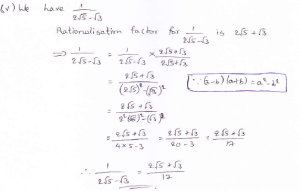 (v) We have 1/(2√5-√3)
Rationalisation factor for 1/(2√5-√3) is 2√5+√3
⇒ 1/(2√5-√3) = 1/(2√5-√3) × (2√5+√3)/(2√5+√3)
= (2√5+√3)/((2√5)²-(√3)²) ∵(a-b)(a+b)=a²-b²
= (2√5+√3)/(2²(√5)²-(√3)²)
= (2√5+√3)/(4×5-3) = (2√5+√3)/(20-3) = (2√5+√3)/17
∴ 1/(2√5-√3) = (2√5+√3)/17